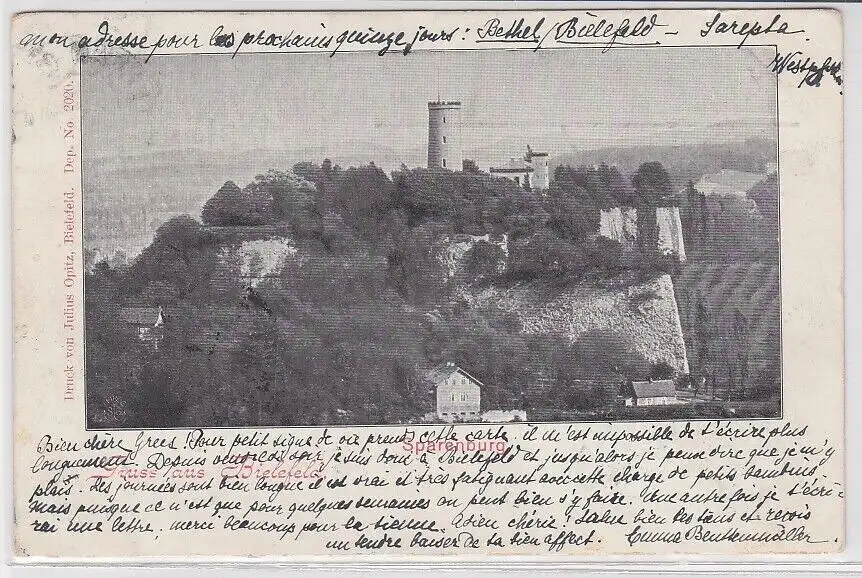 mon adresse pour les prochains quinze jours : Bethel / Bielefeld – Sarepta.
Westphal
Druck von Julius Opitz, Bielefeld. Dep. No. 2020.
Bien chère Grees ! Pour petit signe de vie prends cette carte, il m'est impossible de t'écrire plus
Sparenburg.
longuement. Depuis vendredi soir je suis donc à Bielefeld et jusqu'alors je peux dire que je m'y
Gruss aus Bielefeld
plais. Les journées sont bien longue il est vrai et très fatiguant avec cette charge de petits bambins
mais puisque ce n'est que pour quelques semaines on peut bien s'y faire. Une autre fois je t'écri-
rai une lettre, merci beaucoup pour la tienne. Adieu chérie ! Salue bien les tiens et reçois
un tendre baiser de ta bien affect. Emma